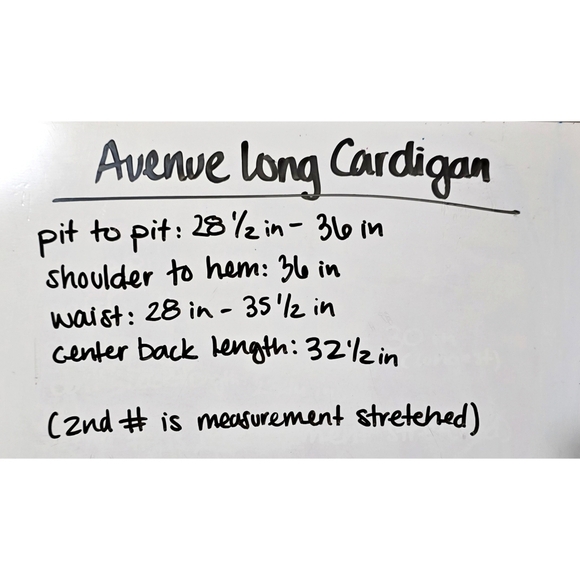 Avenue Long Cardigan
pit to pit: 28 1/2 in - 36 in
shoulder to hem: 36 in
waist: 28 in - 35 1/2 in
center back length: 32 1/2 in
(2nd # is measurement stretched)